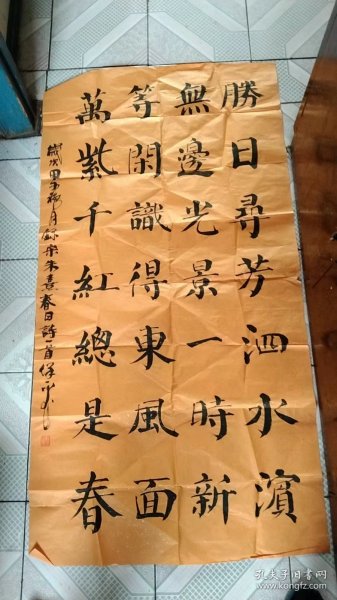 勝日尋芳泗水濱
無邊光景一時新
等閑識得東風面
萬紫千紅總是春
歲次甲午梅月錄宋朱熹春日詩一首
孔夫子旧书网